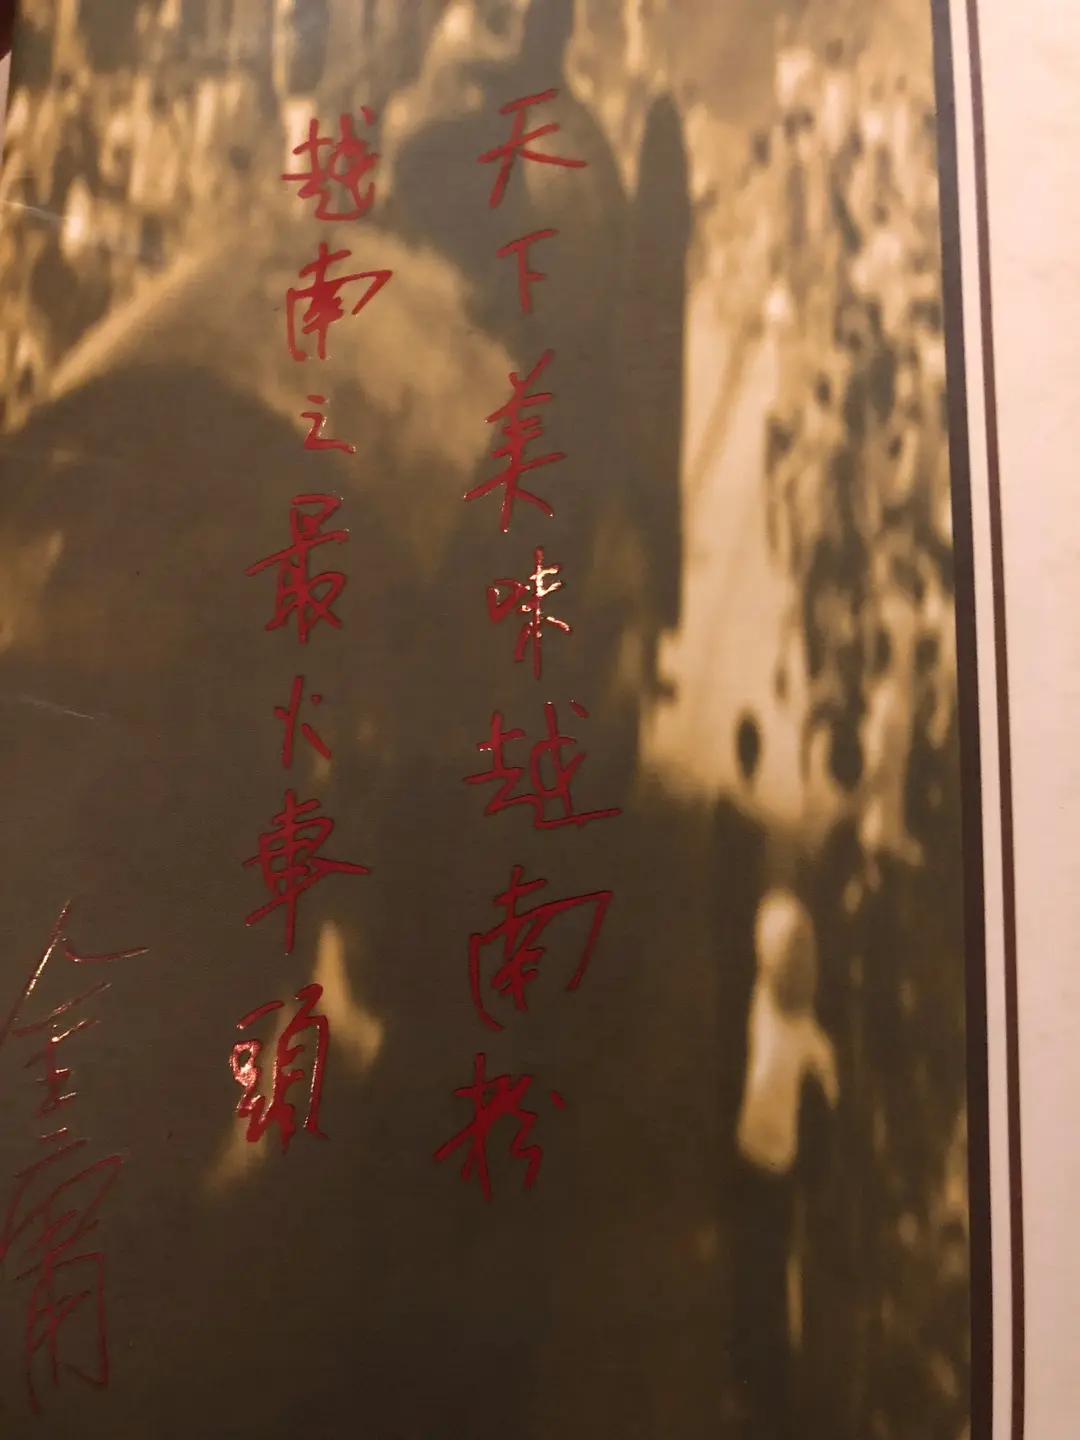 天下美味越南粉
越南之最火車頭
金庸